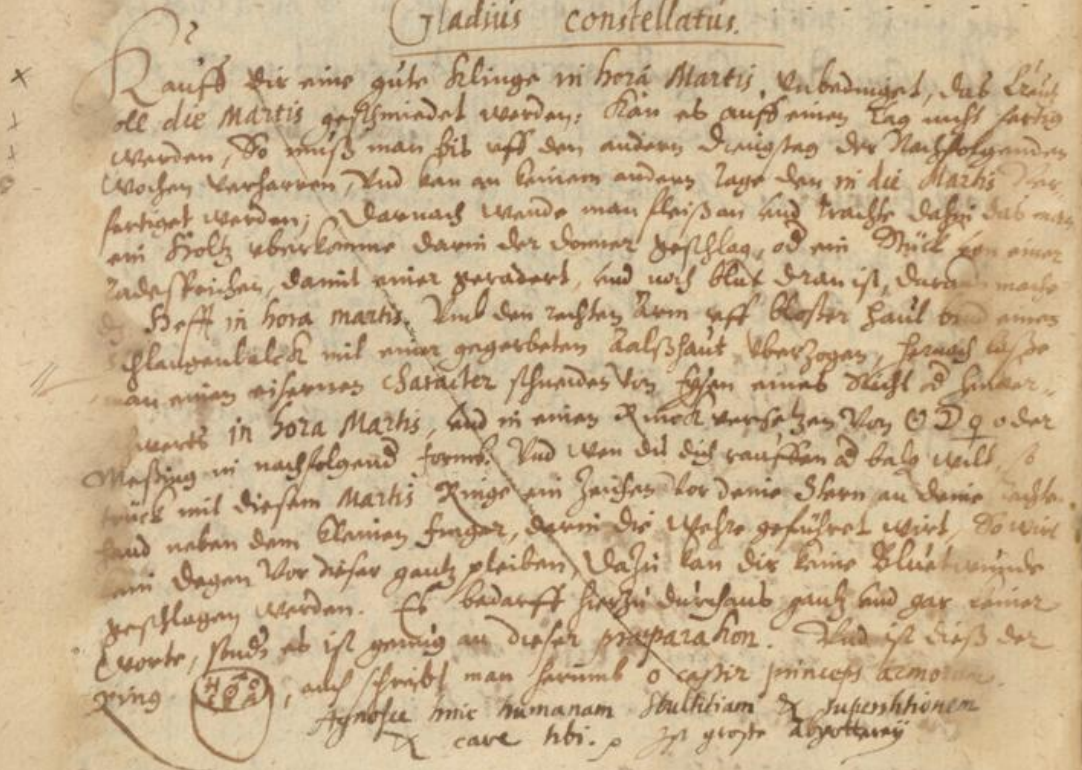 Gladius constellatus.
Kauff dir eine gute Klinge in hora Martis, vnbedinget, das
die Martis geschmiedet werden; Kan es auff einen tag nicht fertig
werden, So muß man bis vff den andern Dingstag der Nachfolgenden
Wochen verharren, Vnd kan an keinem andern tage den in die Martis
fertiget werden; Darnach wende man fleiß an vnd trachte dahin das man
ein Holtz vberkomme darin der donner geschlag, od ein Stück von einer
Radespeichen, damit einer geradert, vnd noch blut dran ist, mache
Hefft in hora martis. Vmb den rechten Arm vff bloser haut einen
schlangenbalck mit einer gegerbeten Aalßhaut vberzogen, hernach lasse
man einen eisernen Character schneiden Von Eysen eines
werts in hora Martis, vnd in einen Rinck versetzen Von ☉ ☽ ♀ oder
Meßing in nachfolgend form. Vnd wen du dich rauffen od balg wilt, so
trück mit diesem Martis Ringe ein Zeichen Vor deine Stern an deine rechte
hand neben dem kleinen finger, darin die Wehre geführet wirt, So wirt
dein Degen Vor dieser gantz pleiben, Dazu kan dir keine Bluetwunde
geschlagen werden. Es bedarff hierzu durchaus gantz vnd gar keiner
Worte, sonds es ist genug an dieser præparation. Vnd ist dieß der
Ring, auch schreibt man herumb o castir princeps armorum.
Agnosce hinc humanam stultitiam & superstitionem
& cave tibi. Ist groste Abgotterey